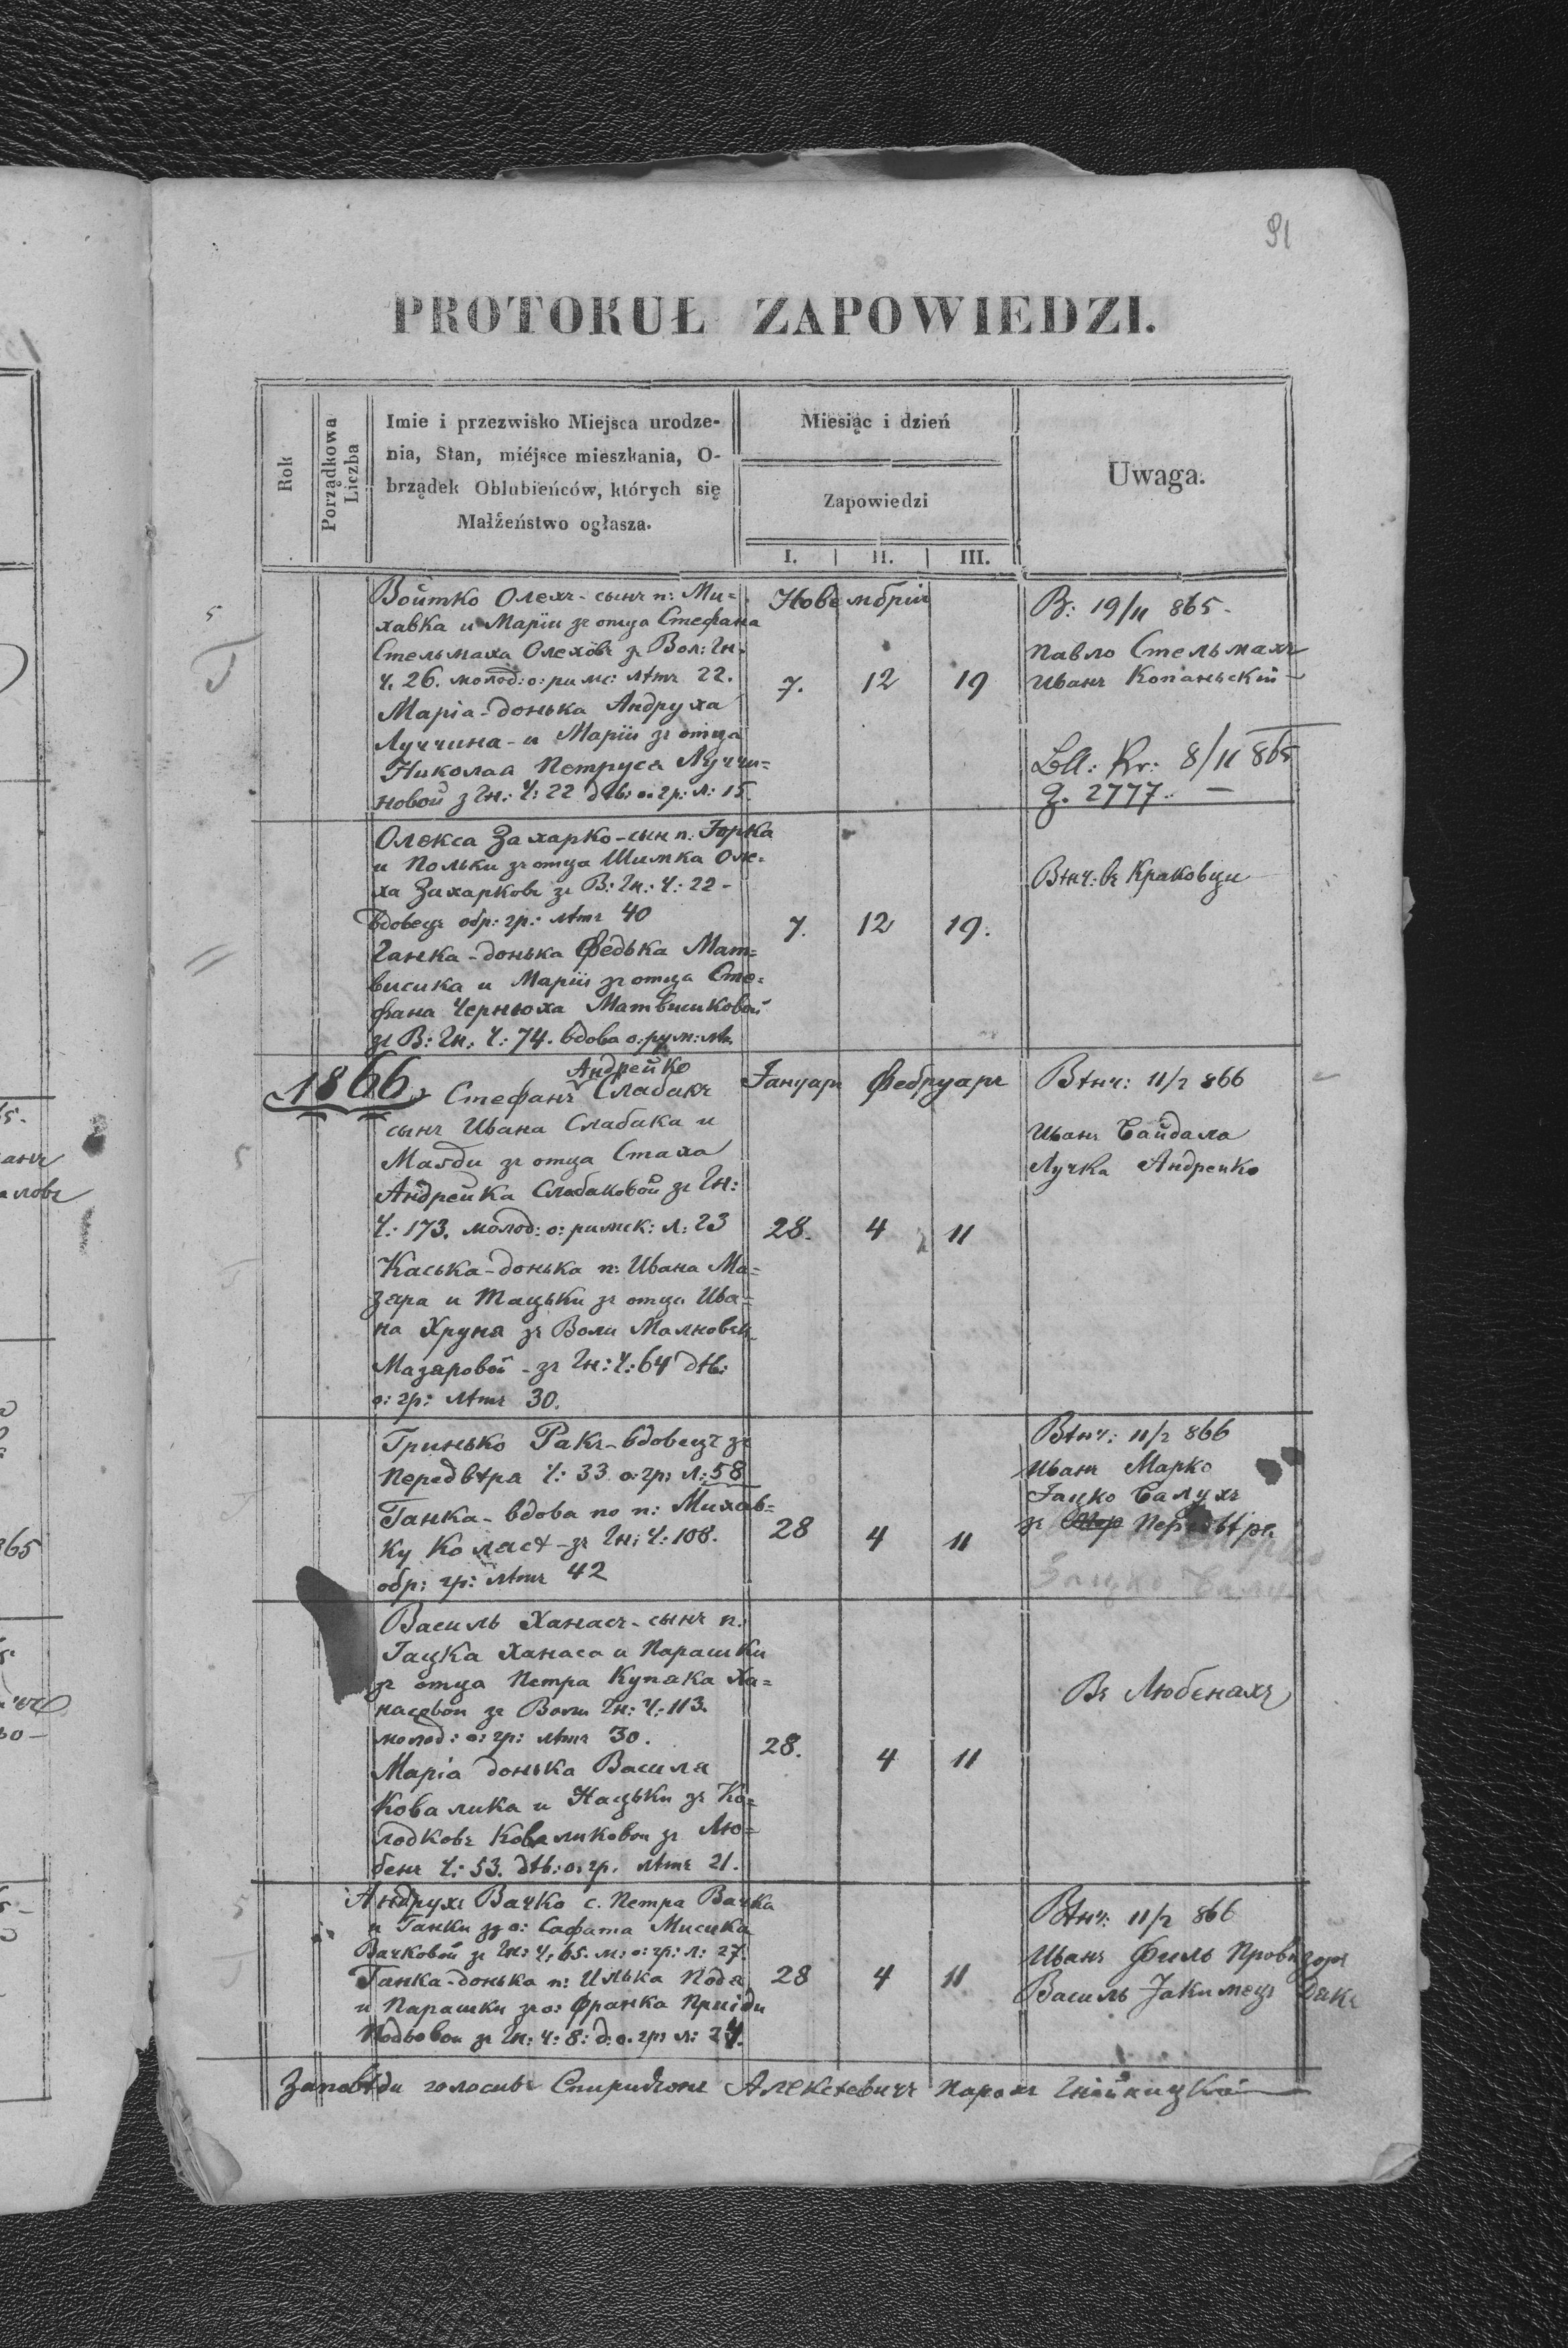 91
PROTOKUŁ ZAPOWIEDZI.
Rok
Porządkowa Liczba
Imie i przezwisko Miejsca urodze-
nia, Stan, miéjsce mieszkania, O-
brządek Oblubieńców, których się
Małżeństwo ogłasza.
Miesiąc i dzień
Zapowiedzi
I. II. III.
Uwaga.
Войтко Олехъ - сынъ п: Ми=
хавка и Маріи зъ отца Стефана
Стельмаха Олехôвъ зъ Вол: Гн.
Ч. 26. молод: о: римс: лѣтъ 22.
Марія - донька Андруха
Луччина - и Маріи зъ отца
Николая Петруся Луччи=
новои з Гн: Ч: 22 дѣв: о. гр: л: 15.
Новембрія
7. 12 19
В: 19/11 865.
Павло Стельмахъ
Иванъ Копаньскій -
Lbll: Kr: 8/11 865
Z. 2777. -
Олекса Захарко - сын п. Юрка
и Польки зъ отца Шимка Оле=
ха Захарковъ зъ В: Гн.: Ч: 22 -
вдовецъ обр: гр: лѣтъ 40
Ганка - донька Федька Мат=
висика и Маріи зъ отца Сте=
фана Чернюха Матвисиковой
зъ В: Гн. Ч: 74. вдова о. рим: лѣт.
7. 12 19.
Вѣнч: въ Краковци
1866.
Андрейко
Стефанъ Слабакъ
сынъ Ивана Слабака и
Магди зъ отца Стаха
Андрейка Слабаковой зъ Гн:
Ч: 173. молод: о: римск: л: 23
Каська - донька п: Ивана Ма=
зяра и Тацьки зъ отца Ива=
на Хруня зъ Воли Малновск
Мазяровой - зъ Гн: Ч: 64 дѣв:
о: гр: лѣтъ 30.
Януаръ Фебруаръ
28. 4 11
Вѣнч: 11/2 866
Иванъ Байдала
Лучка Андрейко
Гринько Ракъ - вдовецъ зъ
Передвѣря Ч: 33 о: гр: л: 58
Ганка - вдова по п: Михав=
ку Коласѣ - зъ Гн: Ч: 108.
обр: гр: лѣтъ 42
28 4 11
Вѣнч: 11/2 866
Иванъ Марко
Яцко Балухъ
зъ Передвѣря
Василь Ханасъ - сынъ п.
Яцка Ханаса и Парашки
зъ отца Петра Купяка Ха=
насовои зъ Воли Гн: Ч: 113.
молод: о: гр: лѣтъ 30.
Марія донька Василя
Ковалика и Нацьки зъ Ко=
лодковъ Коваликовои зъ Лю=
бень Ч: 53. дѣв: о. гр. лѣтъ 21.
28. 4 11
Въ Любенахъ
Андрухъ Вачко с. Петра Вачка
и Ганки зъ о: Сафата Мисика
Вачковой зъ Гн: Ч: 65. м: о: гр: л: 27.
Ганка - донька п: Илька Подя
и Парашки зъ о: Франка Приіди
Подьовои зъ Гн: Ч: 8: д: о. гр: л: 24.
28 4 11
Вѣнч: 11/2 866
Иванъ Филь Провизоръ
Василь Якимецъ Дякъ
Заповѣди голосивъ Спиридіонъ Алексѣевичъ Парохъ Гнійницкій